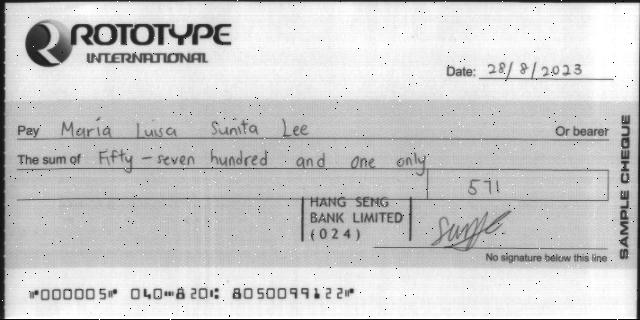 ROTOTYPE
INTERNATIONAL
Date: 28/8/2023
Pay Maria Luisa Sunita Lee Or bearer
The sum of Fifty-seven hundred and one only
571
HANG SENG
BANK LIMITED
(024)
No signature below this line
SAMPLE CHEQUE
⑈000005⑈ 040⑉820⑆ 8050099122⑈